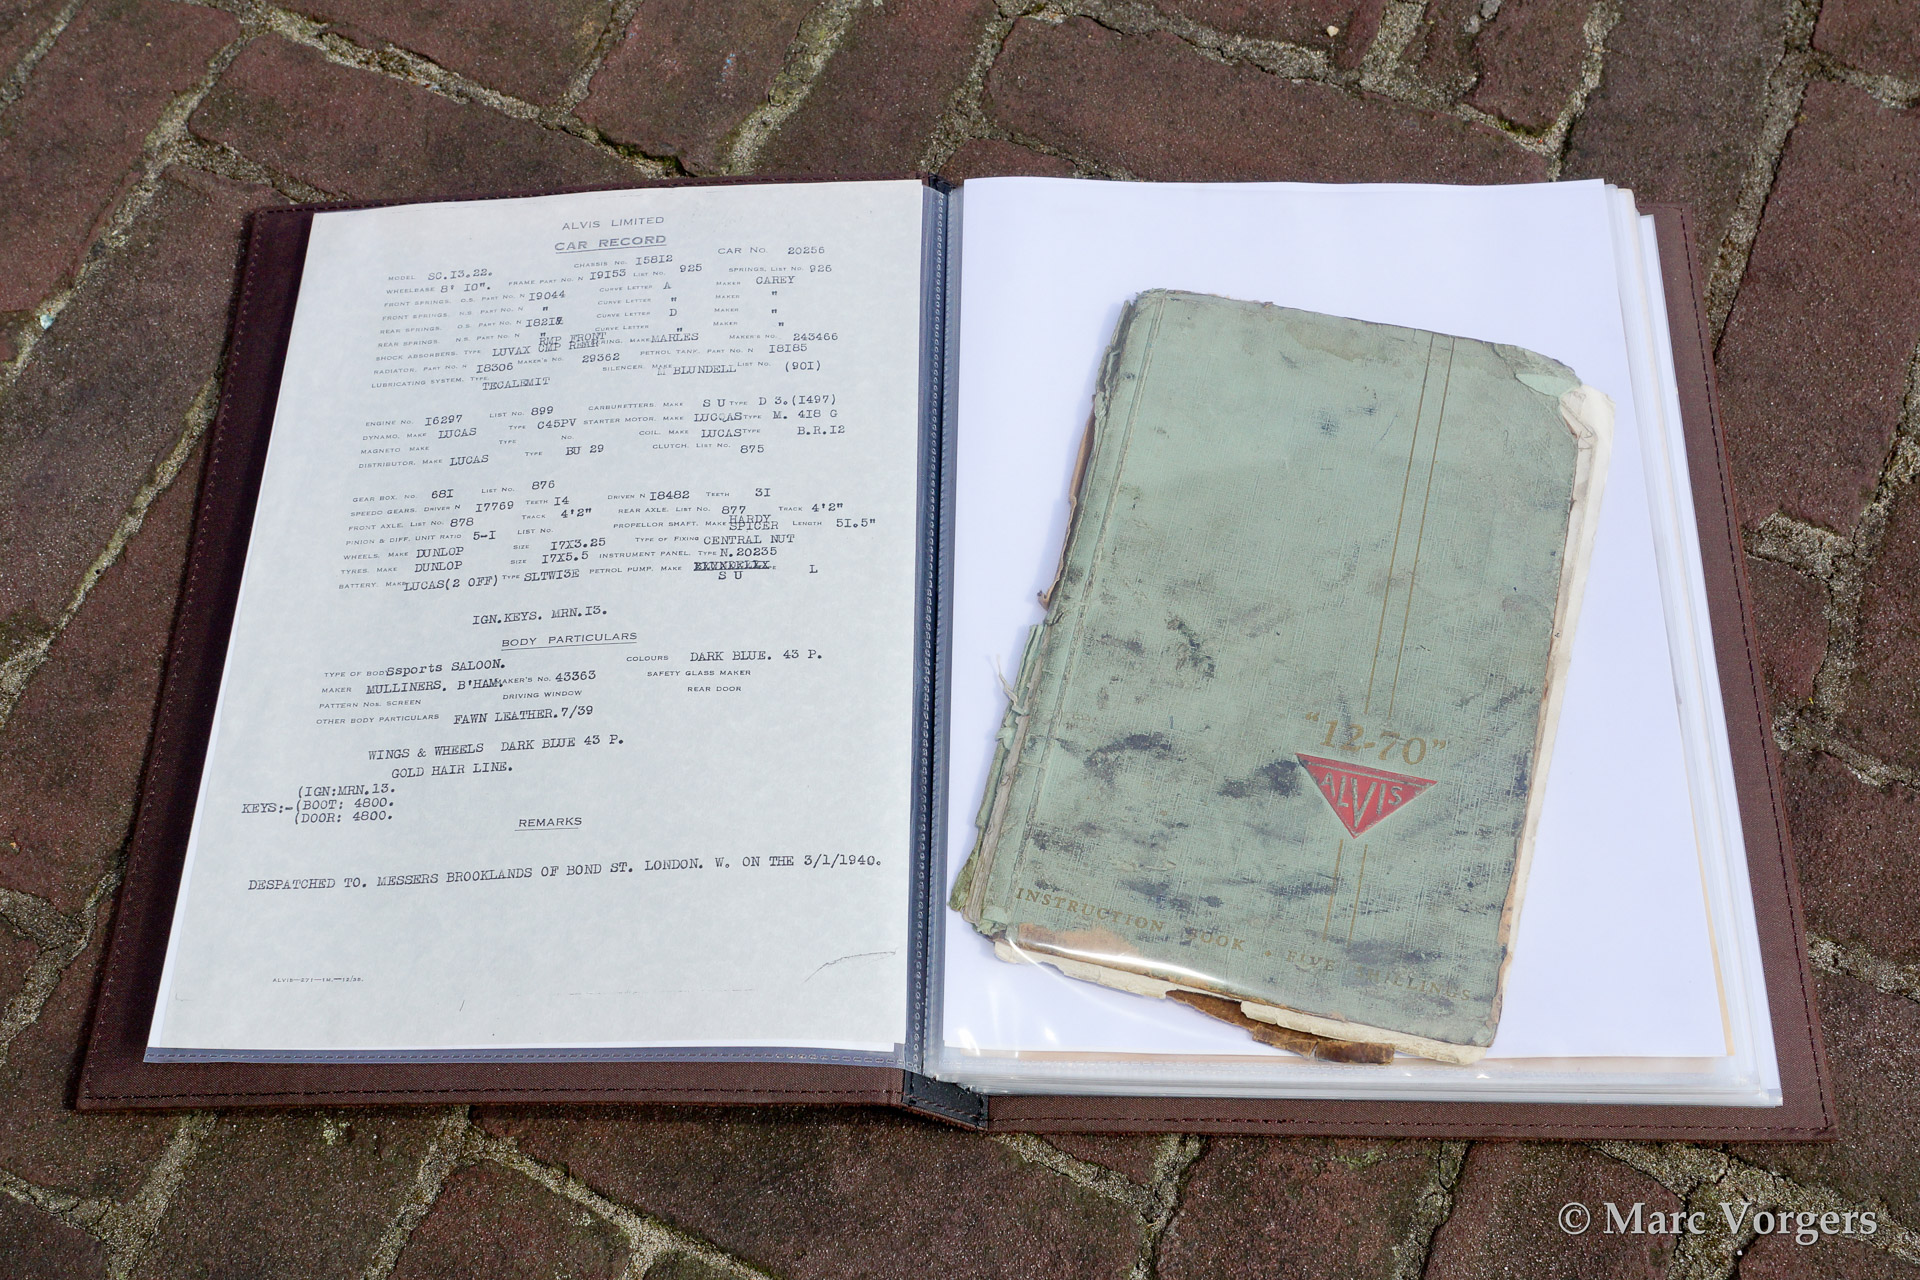 ALVIS LIMITED
CAR RECORD
MODEL SC.13.22. CHASSIS No. 15812 CAR No. 20256
WHEELBASE 8' 10". FRAME PART No. N 19153 LIST No. 925 SPRINGS, LIST No. 926
FRONT SPRINGS. O.S. PART No. N 19044 CURVE LETTER A MAKER CAREY
FRONT SPRINGS. N.S. PART No. N " CURVE LETTER " MAKER "
REAR SPRINGS. O.S. PART No. N CURVE LETTER D MAKER "
REAR SPRINGS. N.S. PART No. N " CURVE LETTER " MAKER "
SHOCK ABSORBERS. TYPE LUVAX RMP FRONT CMP REAR MAKE MARLES MAKER'S No. 243466
RADIATOR. PART No. N 18306 MAKER'S No. 29362 PETROL TANK. PART No. N 18185
LUBRICATING SYSTEM. TYPE TECALEMIT SILENCER. MAKE BLUNDELL LIST No. (901)
ENGINE No. 16297 LIST No. 899 CARBURETTERS. MAKE S U TYPE D 3.(1497)
DYNAMO. MAKE LUCAS TYPE C45PV STARTER MOTOR. MAKE LUCQAS TYPE M. 418 G
MAGNETO MAKE TYPE No. COIL. MAKE LUCAS TYPE B.R.12
DISTRIBUTOR. MAKE LUCAS TYPE BU 29 CLUTCH. LIST No. 875
GEAR BOX. No. 681 LIST No. 876
SPEEDO GEARS. DRIVER N 17769 TEETH 14 DRIVEN N 18482 TEETH 31
FRONT AXLE. LIST No. 878 TRACK 4'2" REAR AXLE. LIST No. 877 TRACK 4'2"
PINION & DIFF. UNIT RATIO 5-1 LIST No. PROPELLOR SHAFT. MAKE HARDY SPICER LENGTH 51.5"
WHEELS. MAKE DUNLOP SIZE 17X3.25 TYPE OF FIXING CENTRAL NUT
TYRES. MAKE DUNLOP SIZE 17X5.5 INSTRUMENT PANEL. TYPE N.20235
BATTERY. MAKE LUCAS(2 OFF) TYPE SLTW13E PETROL PUMP. MAKE S U L
IGN.KEYS. MRN.13.
BODY PARTICULARS
TYPE OF BODY Ssports SALOON. COLOURS DARK BLUE. 43 P.
MAKER MULLINERS. B'HAM. MAKER'S No. 43363 SAFETY GLASS MAKER
PATTERN Nos. SCREEN DRIVING WINDOW REAR DOOR
OTHER BODY PARTICULARS FAWN LEATHER.7/39
WINGS & WHEELS DARK BLUE 43 P.
GOLD HAIR LINE.
(IGN:MRN.13.
KEYS:-(BOOT: 4800.
(DOOR: 4800.
REMARKS
DESPATCHED TO. MESSERS BROOKLANDS OF BOND ST. LONDON. W. ON THE 3/1/1940.
"12-70"
ALVIS
INSTRUCTION BOOK • FIVE SHILLINGS
© Marc Vorgers